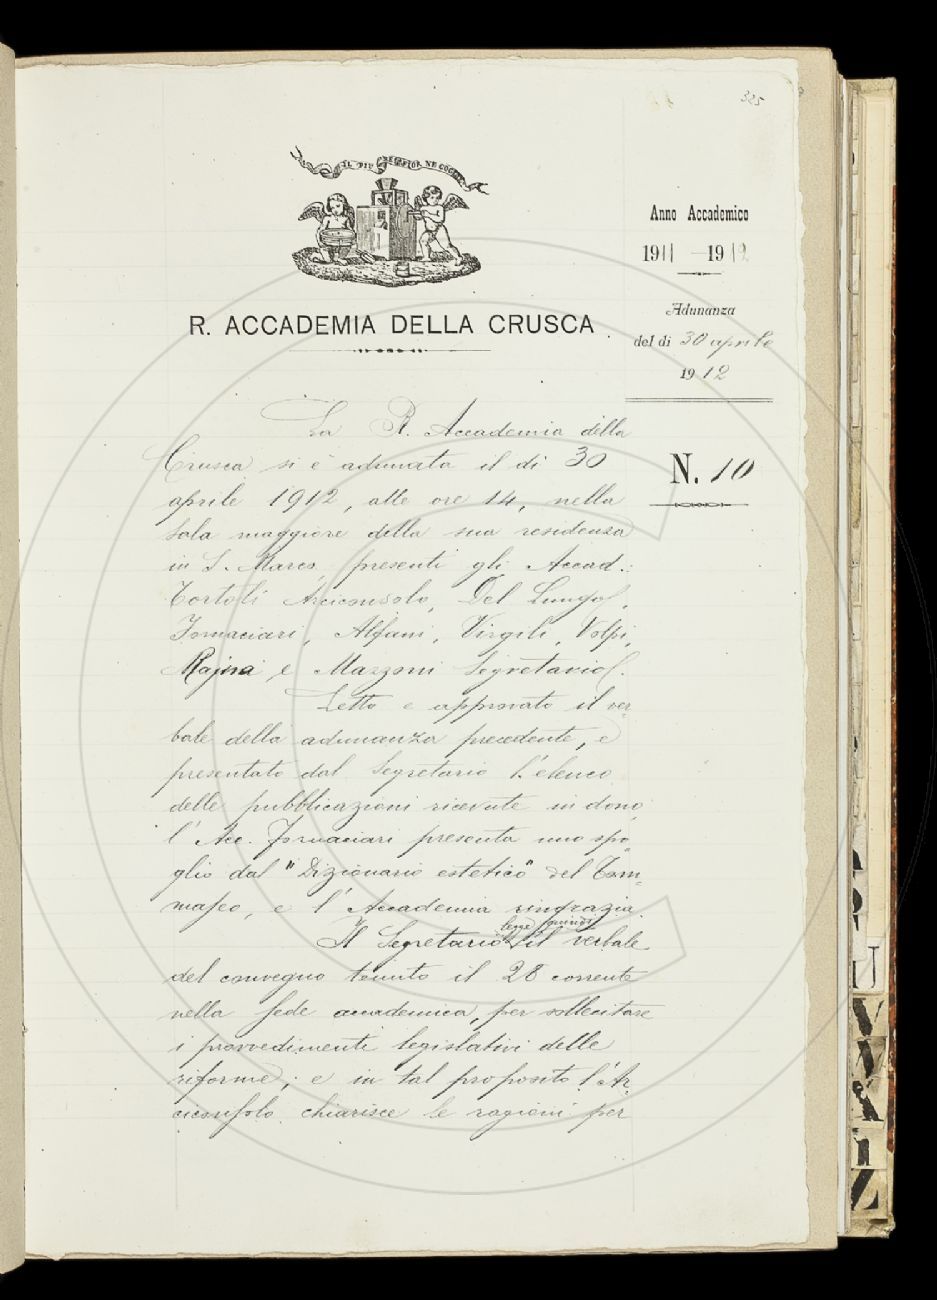 325
IL PIÙ BEL FIOR NE COGLIE
R. ACCADEMIA DELLA CRUSCA
Anno Accademico
1911 - 1912
Adunanza
del dì 30 aprile
1912
N. 10
La R. Accademia della
Crusca si è adunata il dì 30
aprile 1912, alle ore 14, nella
sala maggiore della sua residenza
in S. Marco, presenti gli Accad.:
Tortoli Arciconsolo, Del Lungo,
Fornaciari, Alfani, Virgili, Volpi,
Rajna e Mazzoni Segretario.
Letto e approvato il ver-
bale della adunanza precedente, e
presentato dal Segretario l'elenco
delle pubblicazioni ricevute in dono,
l'Acc. Fornaciari presenta uno spo-
glio dal "Dizionario estetico" del Tom-
maseo, e l'Accademia ringrazia.
Il Segretario legge quindi il verbale
del convegno tenuto il 28 corrente
nella sede accademica, per sollecitare
i provvedimenti legislativi delle
riforme; e in tal proposito l'Ar
ciconsolo chiarisce le ragioni per
U
V
X
Z